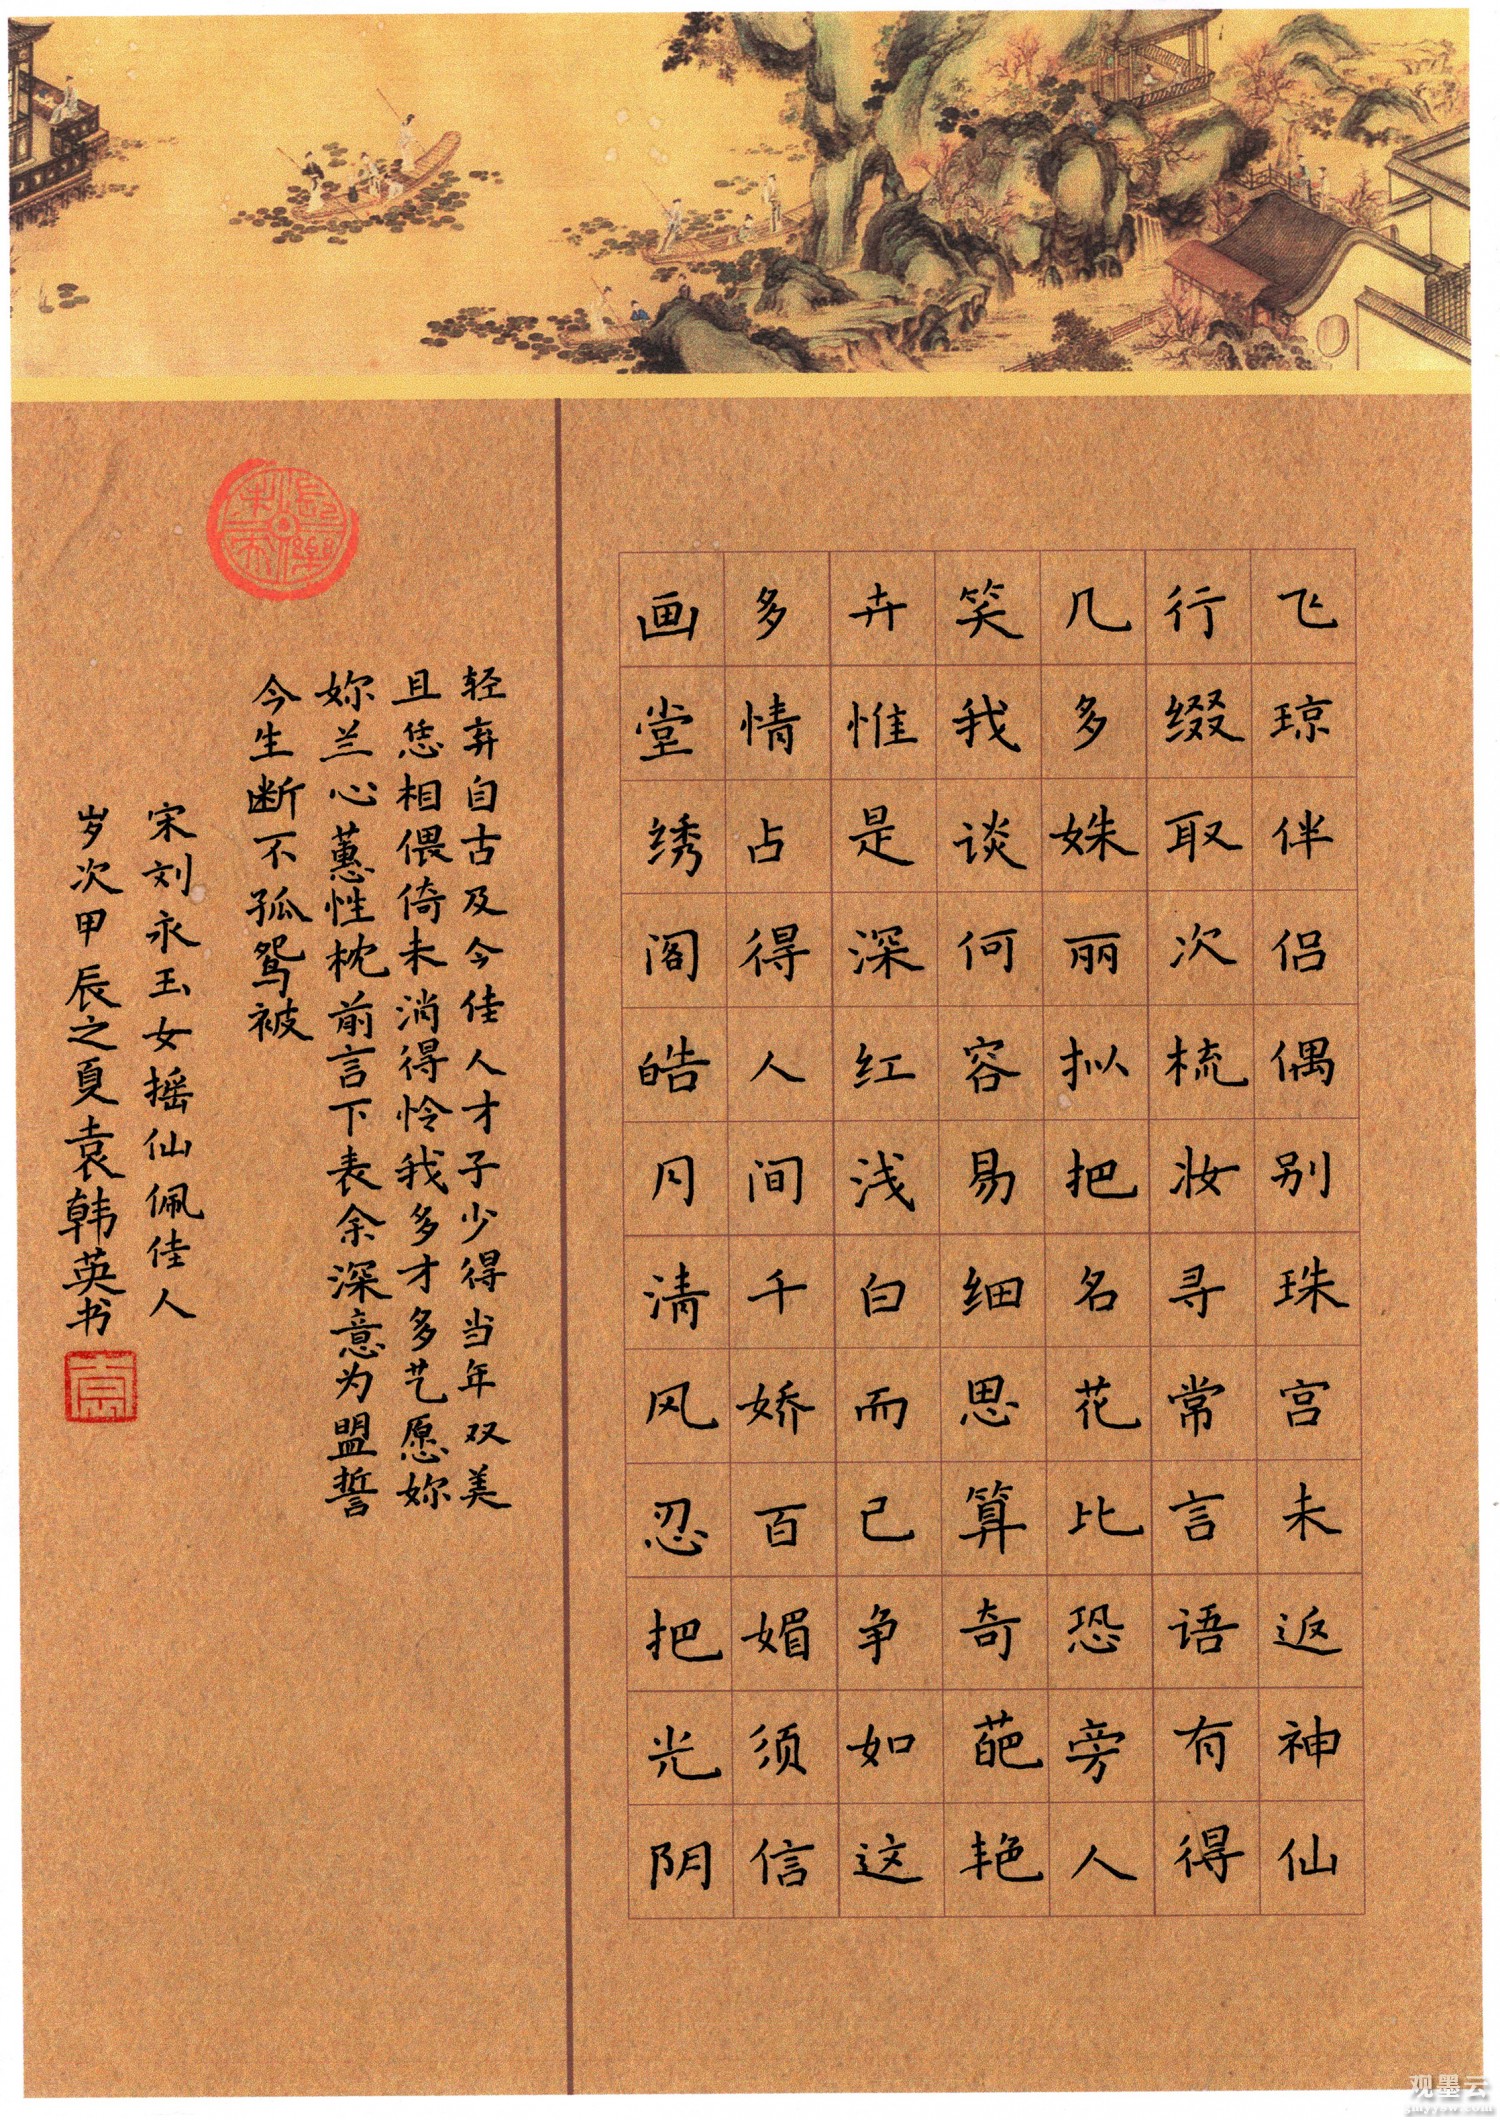 飞琼伴侣偶别珠宫未返神仙
行缀取次梳妆寻常言语有得
几多姝丽拟把名花比恐旁人
笑我谈何容易细思算奇葩艳
卉惟是深红浅白而已争如这
多情占得人间千娇百媚须信
画堂绣阁皓月清风忍把光阴
轻弃自古及今佳人才子少得当年双美
且恁相偎倚未消得怜我多才多艺愿妳
妳兰心蕙性枕前言下表余深意为盟誓
今生断不孤鸳被
宋刘永玉女摇仙佩佳人
岁次甲辰之夏袁韩英书
長樂未央
观墨云